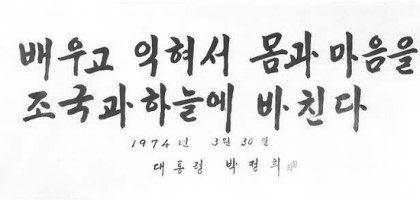 배우고 익혀서 몸과 마음을
조국과 하늘에 바친다
1974년 3월 30일
대통령 박정희